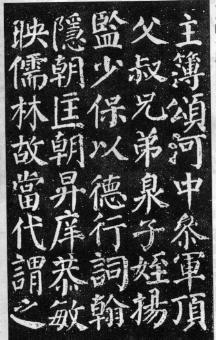 主簿頌河中叅軍頂
父叔兄弟臮子姪揚
監少保以德行詞翰
隱朝匡朝昇庠恭敏
映儒林故當代謂之